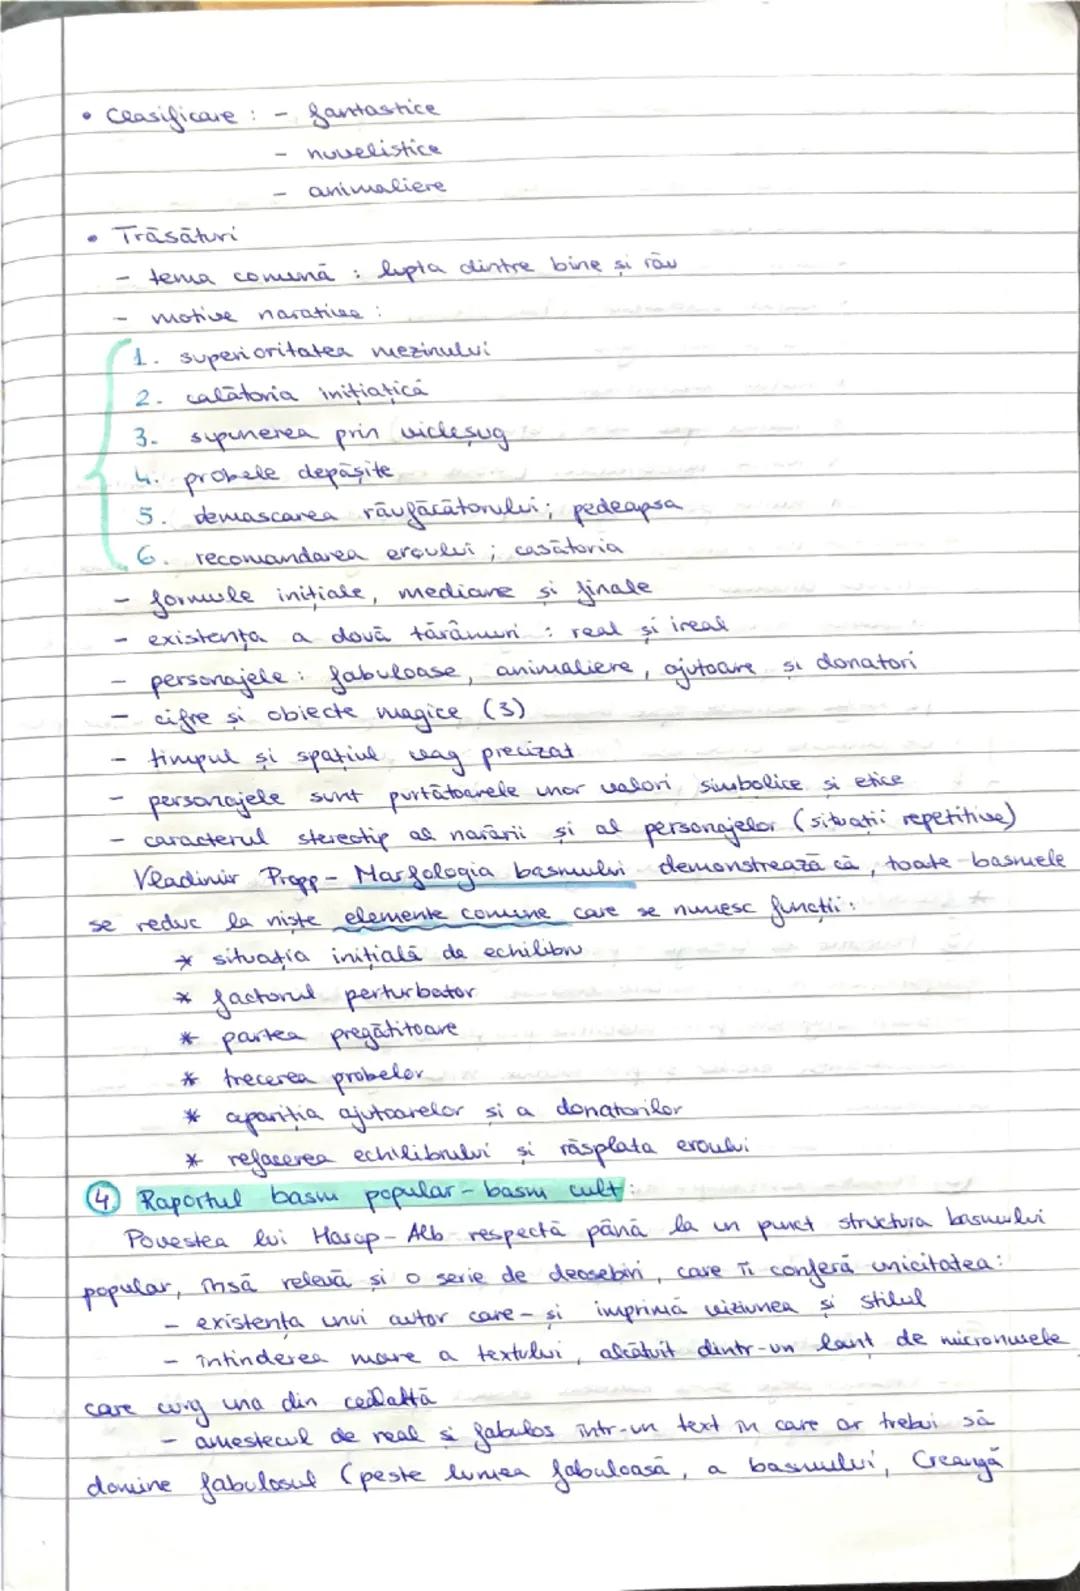 • Clasificare : - fantastice
- nuvelistice
- animaliere
• Trăsături
- tema comună : lupta dintre bine și rău
- motive narative :
1. superioritatea mezinului
2. călătoria inițiatică
3. supunerea prin vicleșug
4. probele depășite
5. demascarea răufăcătorului; pedeapsa
6. recomandarea eroului ; căsătoria
- formule inițiale, mediane și finale
- existența a două tărâmuri : real și ireal
- personajele : fabuloase, animaliere, ajutoare și donatori
- cifre și obiecte magice (3)
- timpul și spațiul vag precizat
- personajele sunt purtătoarele unor valori simbolice și etice
- caracterul stereotip al narării și al personajelor (situații repetitive)
Vladimir Propp - Morfologia basmului demonstrează că, toate basmele
se reduc la niște elemente comune care se numesc funcții :
* situația inițială de echilibru
* factorul perturbator
* partea pregătitoare
* trecerea probelor
* apariția ajutoarelor și a donatorilor
* refacerea echilibrului și răsplata eroului
4 Raportul basm popular - basm cult :
Povestea lui Harap-Alb respectă până la un punct structura basmului
popular, însă relevă și o serie de deosebiri, care îi conferă unicitatea :
- existența unui autor care-și imprimă viziunea și stilul
- întinderea mare a textului, alcătuit dintr-un lanț de micronuvele
care curg una din cealaltă
- amestecul de real și fabulos într-un text în care ar trebui să
domine fabulosul (peste lumea fabuloasă, a basmului, Creangă